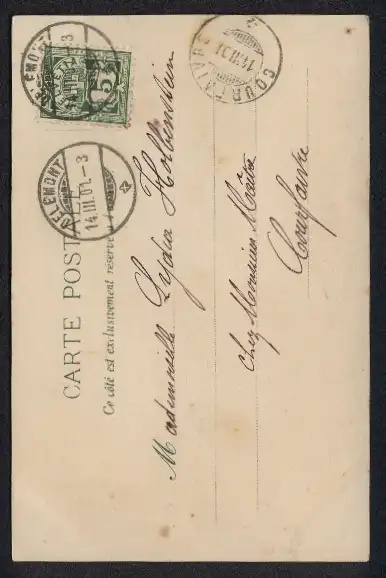 CARTE POSTALE
Ce côté est exclusivement réservé à
DELÉMONT
14.III.01.-3
DELÉMONT
5
COURFAIVRE
14.III.01
Mademoiselle Lydia
Chez Monsieur
Courfaivre